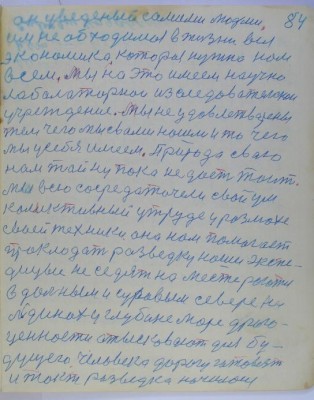 84
ак уведеный самими людми,
им необходимов жизни вся
экономика, которая нужна нам
всем. Мы на это имеем научно
лабалаторной изследавателни
учреждение. Мы не удовлетварены
тем чего мы свами нашли и то чего
мы усебя имеем. Природа сваго
нам тайну пока недает
мы всю сосредаточели свой ум
каликтивный утруде
своей техники она нам помогает
праклодат разведку наши экспе-
диции не седят на месте
в далным и суровым севере на
лдинах и глубине море драго-
ценности атыскавают для бу-
дущего человека дарогу
и разведка